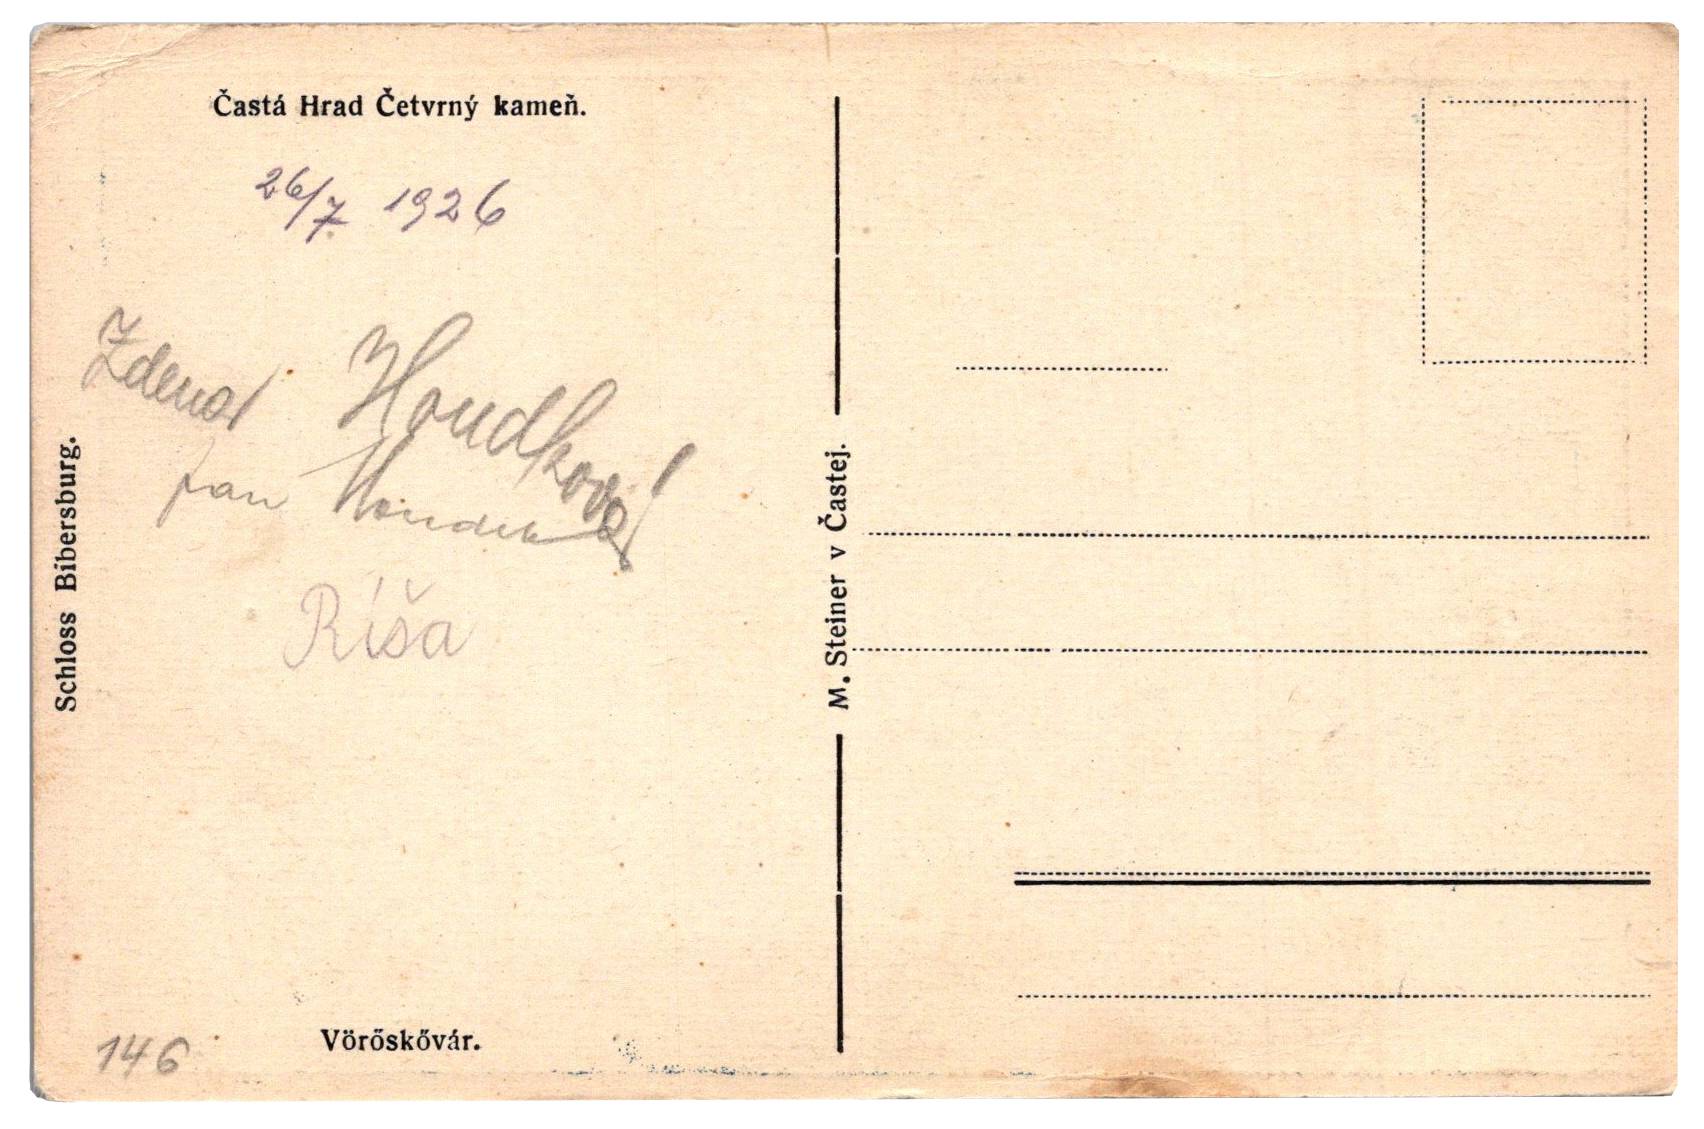 Častá Hrad Četvrný kameň.
26/7 1926
Zdena Houdková
Jan Houdek
Ríša
Schloss Bibersburg.
M. Steiner v Častej.
Vöröskővár.
146